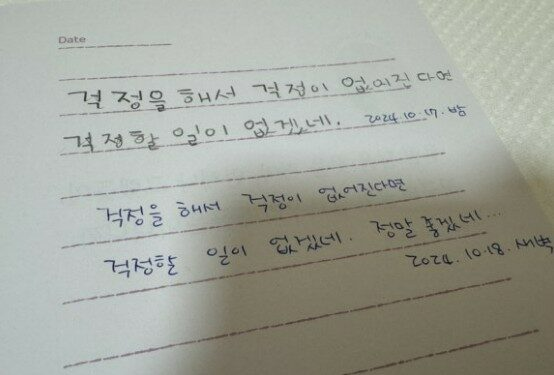 Date
걱정을 해서 걱정이 없어진다면
걱정할 일이 없겠네. 2024.10.17. 밤
걱정을 해서 걱정이 없어진다면
걱정할 일이 없겠네. 정말 좋겠네...
2024.10.18. 새벽